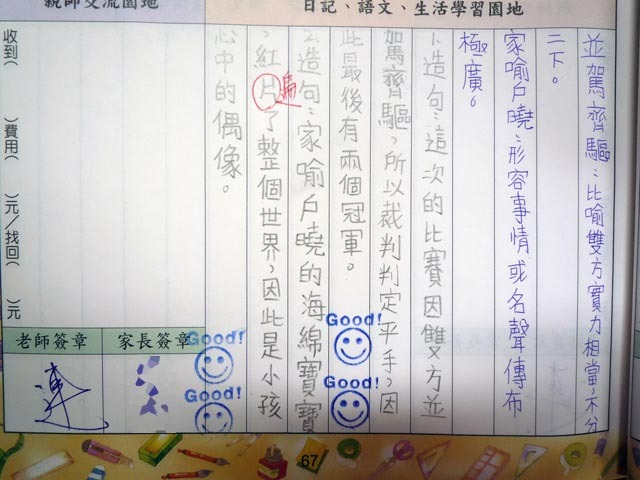 親師交流園地
日記、語文、生活學習園地
並駕齊驅：比喻雙方實力相當，不分
二下。
家喻戶曉：形容事情或名聲傳布
極廣。
1.造句：這次的比賽因雙方並
駕齊驅，所以裁判判定平手，因
此最後有兩個冠軍。
2.造句：家喻戶曉的海綿寶寶
，紅片了整個世界，因此是小孩
遍
心中的偶像。
收到(　　)費用(　　)元／找回(　　)元
老師簽章
家長簽章
Good!
Good!
Good!
Good!
67